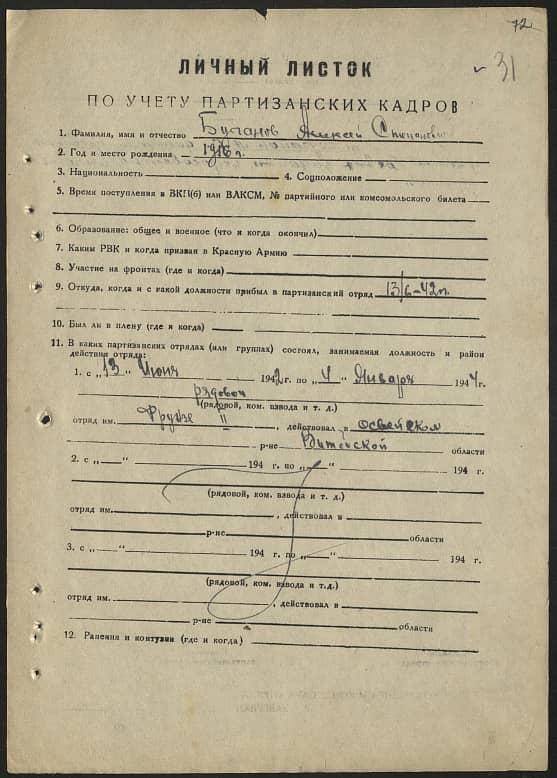 72
31
ЛИЧНЫЙ ЛИСТОК
ПО УЧЕТУ ПАРТИЗАНСКИХ КАДРОВ
1. Фамилия, имя и отчество Алексей
2. Год и место рождения 1916 г.
3. Национальность 4. Соцположение
5. Время поступления в ВКП(б) или ВЛКСМ, № партийного или комсомольского билета
6. Образование: общее и военное (что и когда окончил)
7. Каким РВК и когда призван в Красную Армию
8. Участие на фронтах (где и когда)
9. Откуда, когда и с какой должности прибыл в партизанский отряд 13/6-42 г.
10. Был ли в плену (где и когда)
11. В каких партизанских отрядах (или группах) состоял, занимаемая должность и район
действия отряда:
1. с „13" Июня 1942 г. по „4" Января 1944 г.
рядовой
(рядовой, ком. взвода и т. д.)
отряд им. Фрунзе , действовал в Освейском
р-не Витебской области
2. с „ — " 194 г. по „ — " 194 г.
(рядовой, ком. взвода и т. д.)
отряд им. , действовал в
р-не области
3. с „ — " 194 г. по „ — " 194 г.
(рядовой, ком. взвода и т.д.)
отряд им. , действовал в
р-не области
12. Ранения и контузии (где и когда)